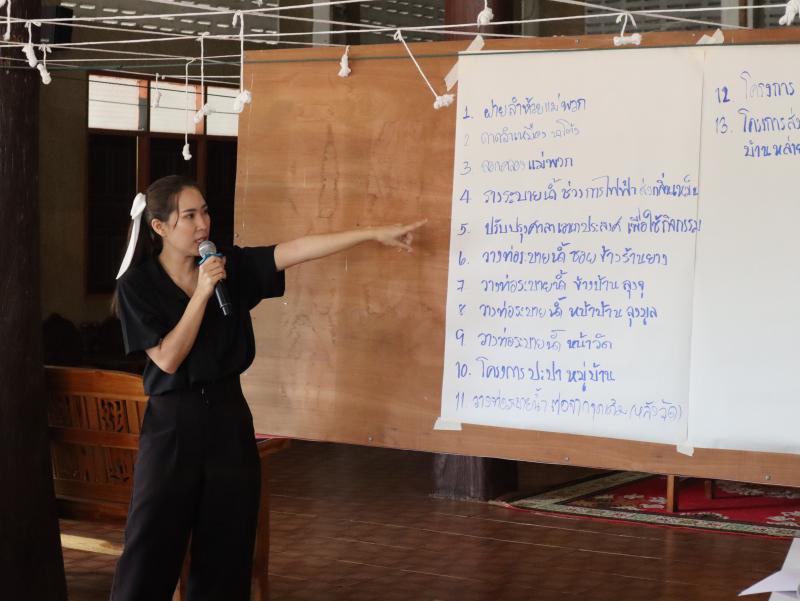 1. ฝายลำห้วยแม่พวก
2 ดาดลำเหมือง
3. ขุดลอกคลอง แม่พวก
4 รางระบายน้ำ ช่วงการไฟฟ้า ส่งกลิ่นเหม็น
5. ปรับปรุงศาลาเอนกประสงค์ เพื่อใช้กิจกรรม
6 วางท่อระบายน้ำ ซอย ข้างร้านยาง
7 วางท่อระบายน้ำ ข้างบ้าน ลุงจู
8 วางท่อระบายน้ำ หน้าบ้าน ลุงมูล
9 วางท่อระบายน้ำ หน้าวัด
10. โครงการ ปะปา หมู่บ้าน
11 วางท่อระบายน้ำ ต่อจากจุดเดิม (หลังวัด)
12 โครงการ
13. โครงการส่ง
บ้านหล่าย